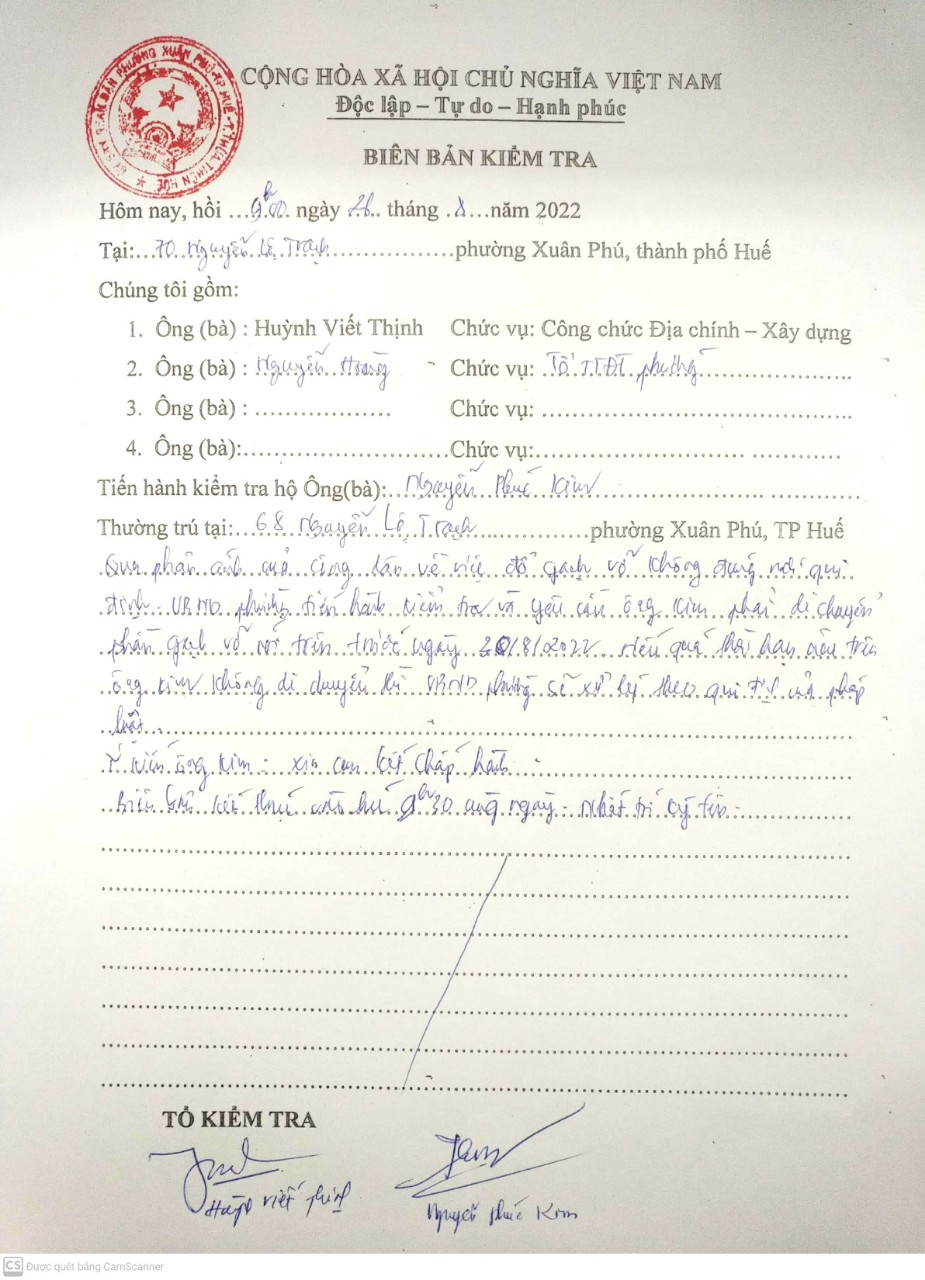 ỦY BAN NHÂN DÂN PHƯỜNG XUÂN PHÚ-TP HUẾ-T.THỪA THIÊN HUẾ
CỘNG HÒA XÃ HỘI CHỦ NGHĨA VIỆT NAM
Độc lập – Tự do – Hạnh phúc
BIÊN BẢN KIỂM TRA
Hôm nay, hồi ...9h00. ngày tháng .8...năm 2022
Tại:...70 Nguyễn Lộ Trạch.....................phường Xuân Phú, thành phố Huế
Chúng tôi gồm:
1. Ông (bà) : Huỳnh Viết Thịnh Chức vụ: Công chức Địa chính – Xây dựng
2. Ông (bà) : Nguyễn Hoàng Chức vụ: Tổ TTĐT phường........................
3. Ông (bà) : ..................... Chức vụ: ...............................................
4. Ông (bà):..............................Chức vụ:................................ ..............
Tiến hành kiểm tra hộ Ông(bà):....Nguyễn Phúc Kim.......................... ..............
Thường trú tại:...68 Nguyễn Lộ Trạch..................phường Xuân Phú, TP Huế
Qua phản ánh của công dân về việc đổ gạch vỡ không đúng nơi qui
định. UBND phường tiến hành kiểm tra và yêu cầu ông Kim phải di chuyển
phần gạch vỡ nói trên trước ngày /8/2022. Nếu quá thời hạn nêu trên
ông Kim không di chuyển thì UBND phường sẽ xử lý theo qui định của pháp
luật.
Ý kiến ông Kim: xin cam kết chấp hành.
Biên bản kết thúc vào lúc 9h30 cùng ngày. Nhất trí ký tên.
TỔ KIỂM TRA
Huỳnh Viết Thịnh
Nguyễn Phúc Kim
CS Được quét bằng CamScanner